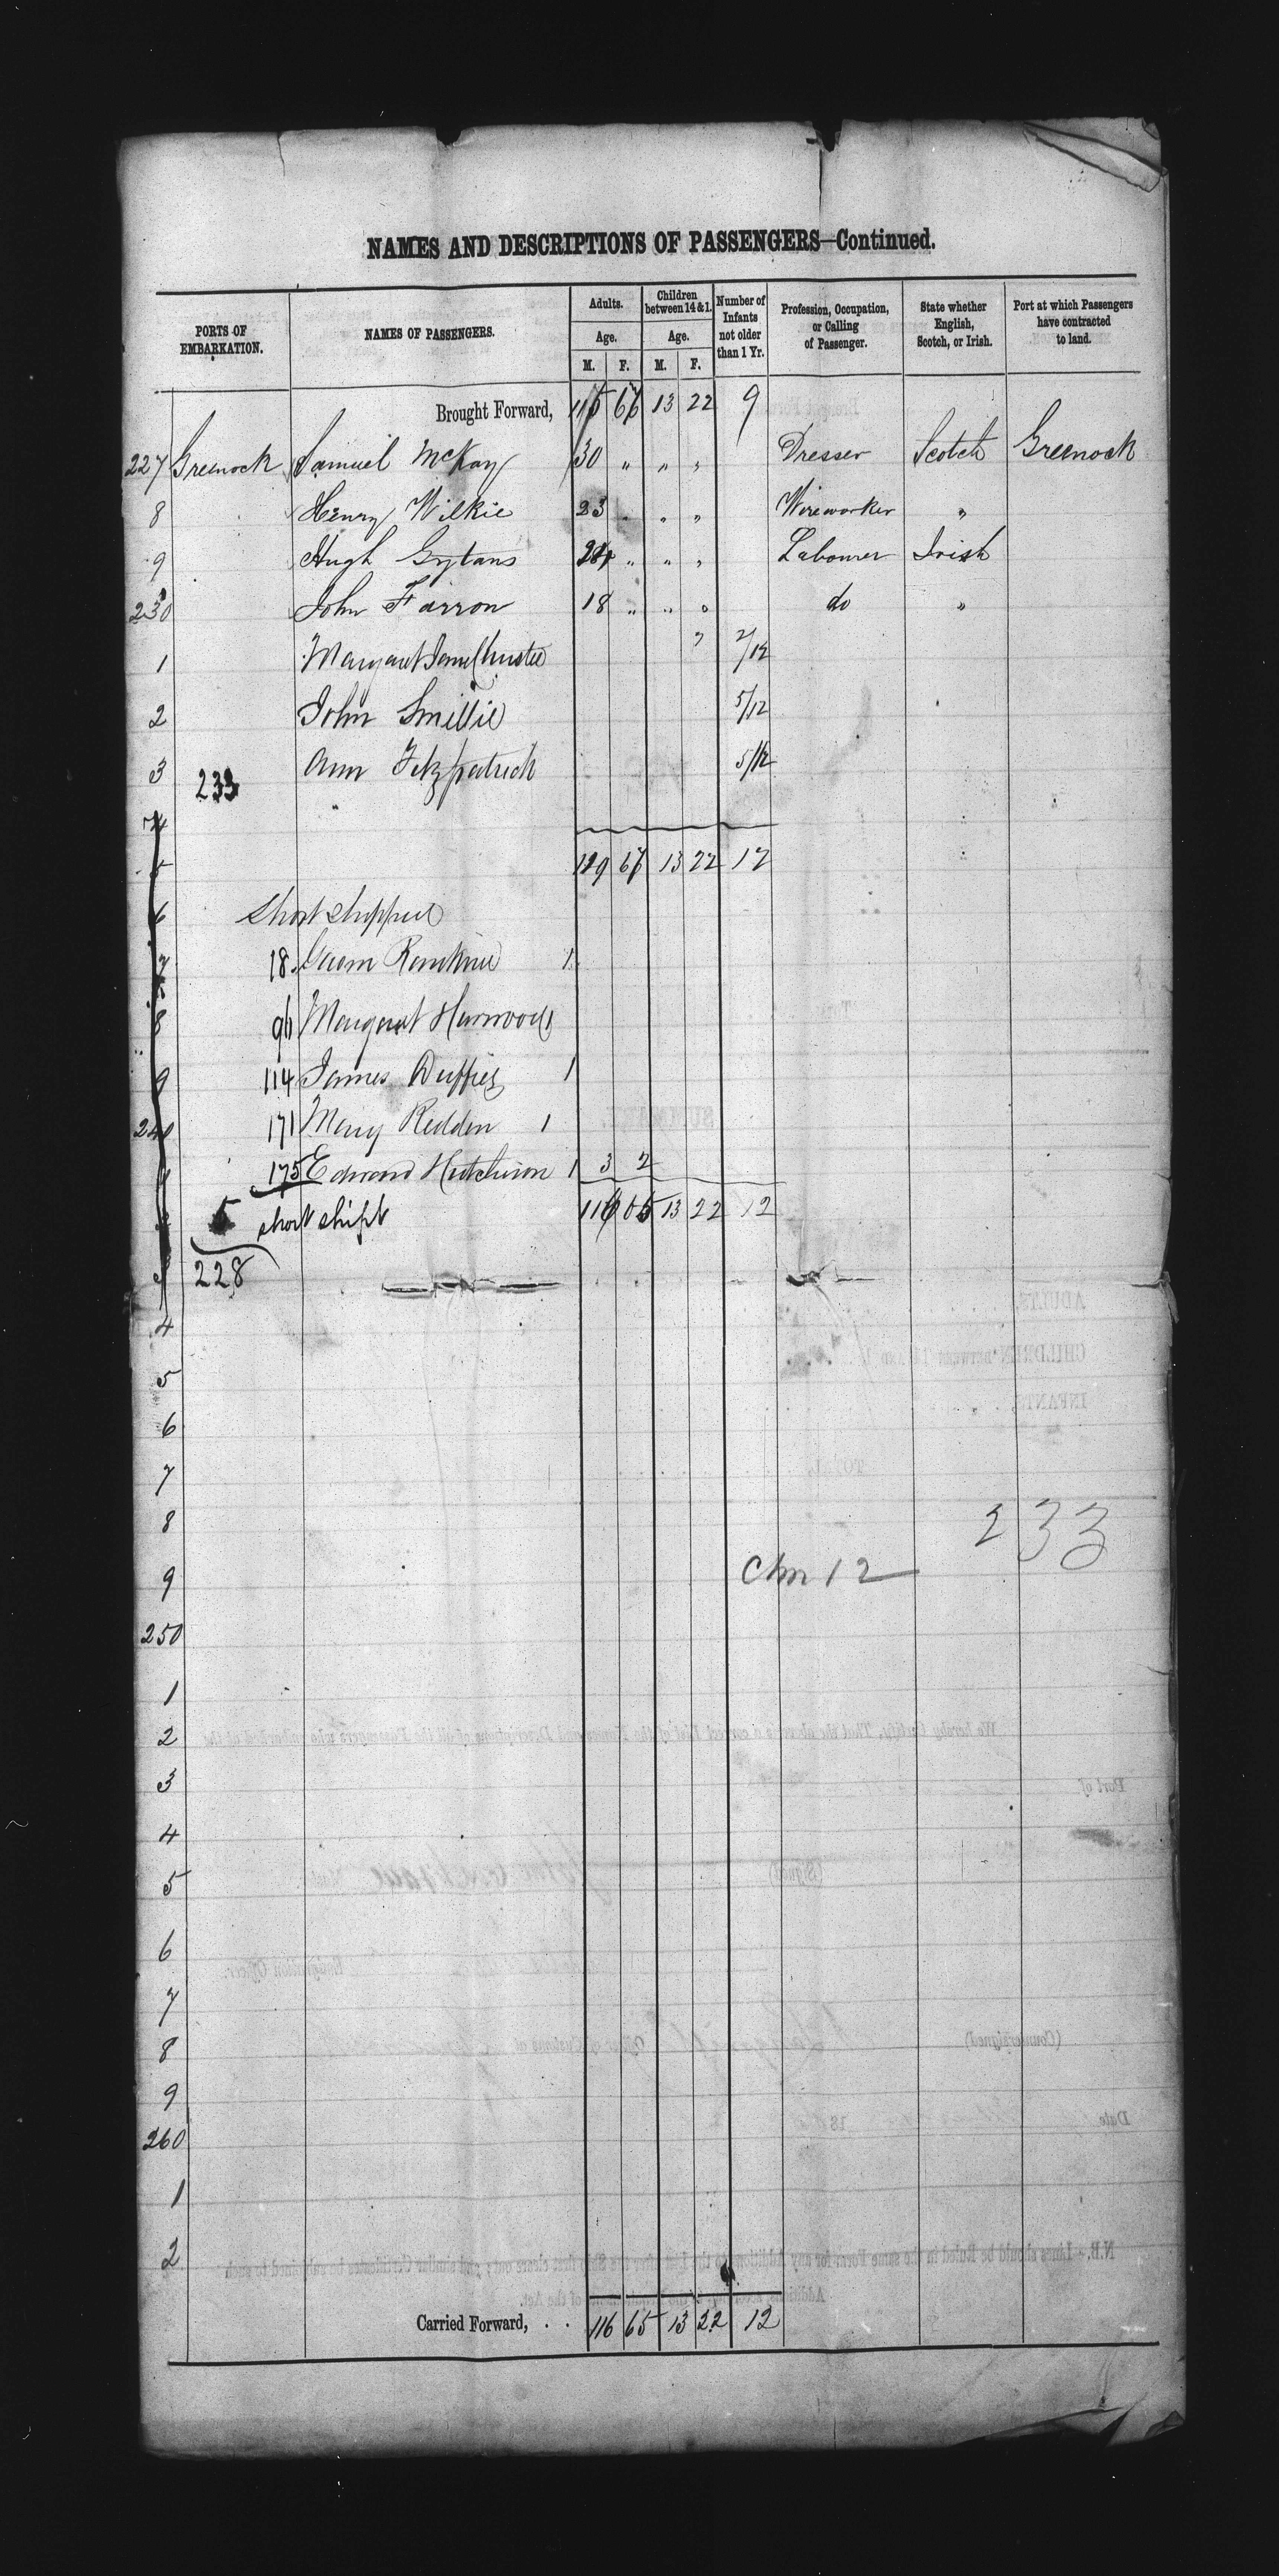 NAMES AND DESCRIPTIONS OF PASSENGERS—Continued.
PORTS OF EMBARKATION. NAMES OF PASSENGERS. Adults. Age. M. F. Children between 14 & 1. Age. M. F. Number of Infants not older than 1 Yr. Profession, Occupation, or Calling of Passenger. State whether English, Scotch, or Irish. Port at which Passengers have contracted to land.
Brought Forward, 115 67 13 22 9
227 Greenock Samuel McKay 30 " " " Dresser Scotch Greenock
8 Henry Wilkie 23 " " " Wireworker "
9 Hugh 24 " " " Labourer Irish
230 John Farron 18 " " " do "
1 Margaret Jane Christie " 2/12
2 John Smillie 5/12
3 233 Ann Fitzpatrick 5/12
4
5 119 67 13 22 12
6 Short shipped
7 18. Rankine 1
8 96 Margaret Harwood 1
9 114 James Duffie 1
240 171 Mary Redden 1
1 175 Edward Hutchison 1 3 2
2 5 short shipt 116 65 13 22 12
3 228
4
5
6
7
8 233
9 Chn 12
250
1
2
3
4
5
6
7
8
9
260
1
2
Carried Forward, . . 116 65 13 22 12